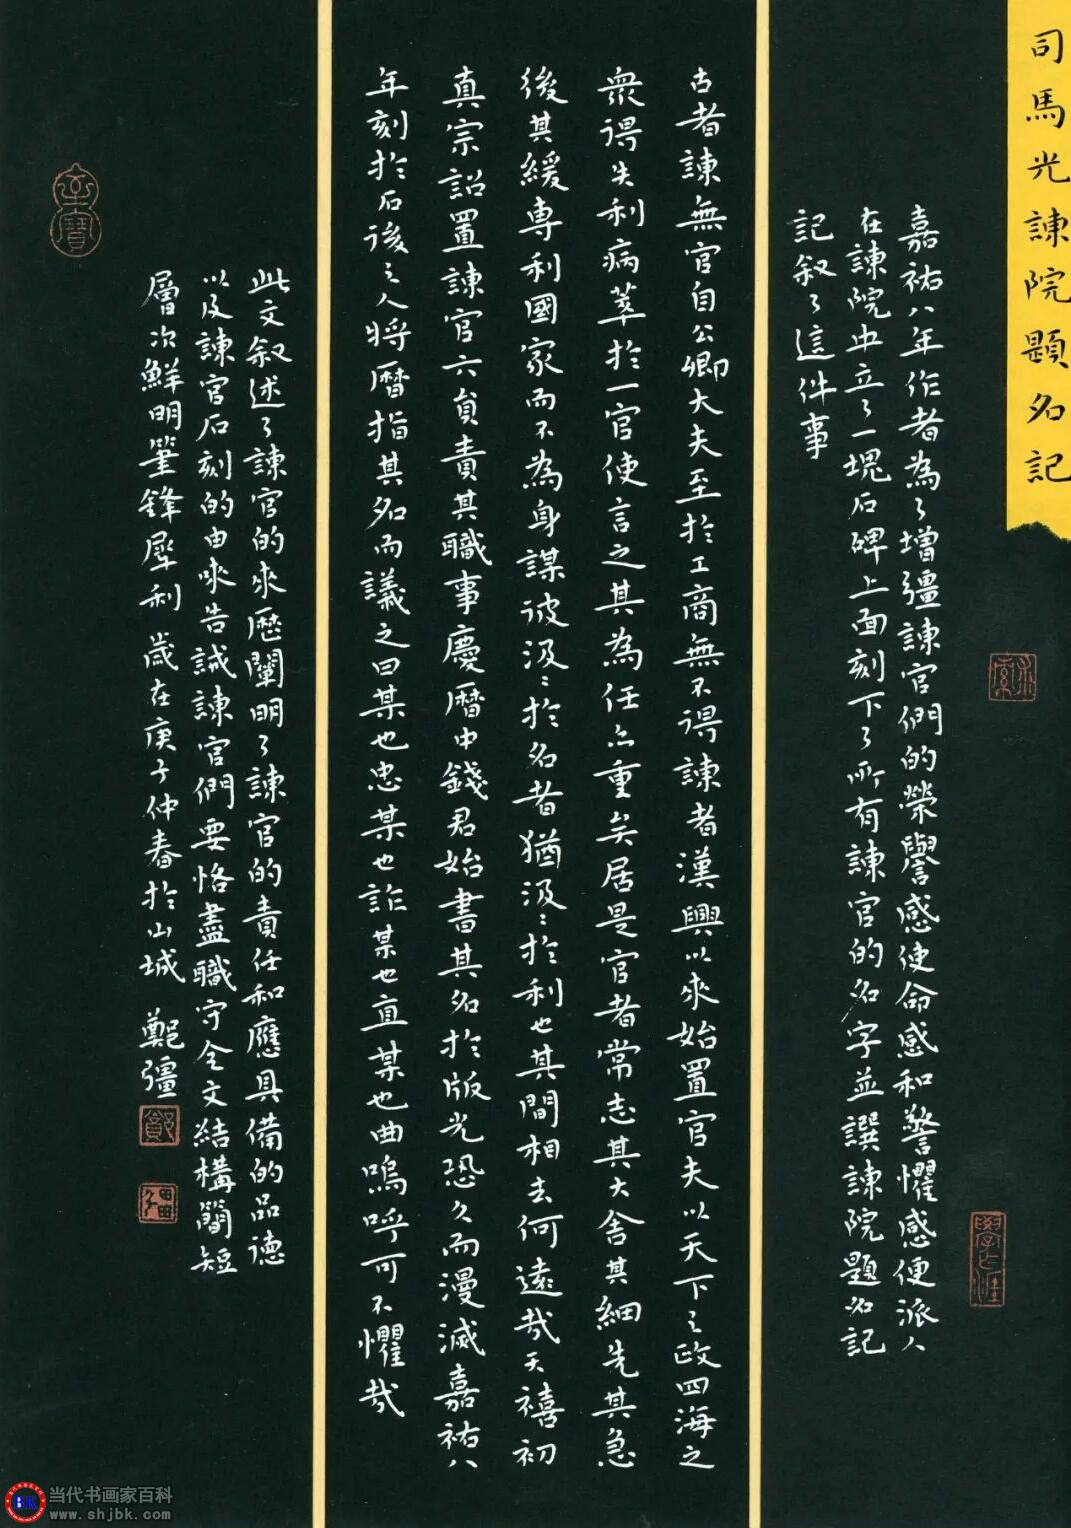 司馬光諫院題名記
嘉祐八年作者為了增彊諫官們的榮譽感使命感和警懼感便派人
在諫院中立了一塊石碑上面刻下了所有諫官的名字並譔諫院題名記
記叙了這件事
古者諫無官自公卿大夫至於工商無不得諫者漢興以來始置官夫以天下之政四海之
衆得失利病萃於一官使言之其為任亦重矣居是官者常志其大舍其細先其急
後其緩專利國家而不為身謀彼汲〻於名者猶汲〻於利也其間相去何遠哉天禧初
真宗詔置諫官六員責其職事慶曆中錢君始書其名於版光恐久而漫滅嘉祐八
年刻於石後之人將曆指其名而議之曰某也忠某也詐某也直某也曲嗚呼可不懼哉
此文叙述了諫官的來歷闡明了諫官的責任和應具備的品德
以及諫官石刻的由來告誡諫官們要恪盡職守全文結構簡短
層次鮮明筆鋒犀利 歲在庚子仲春於山城 鄭彊
当代书画家百科
www.shjbk.com
BK